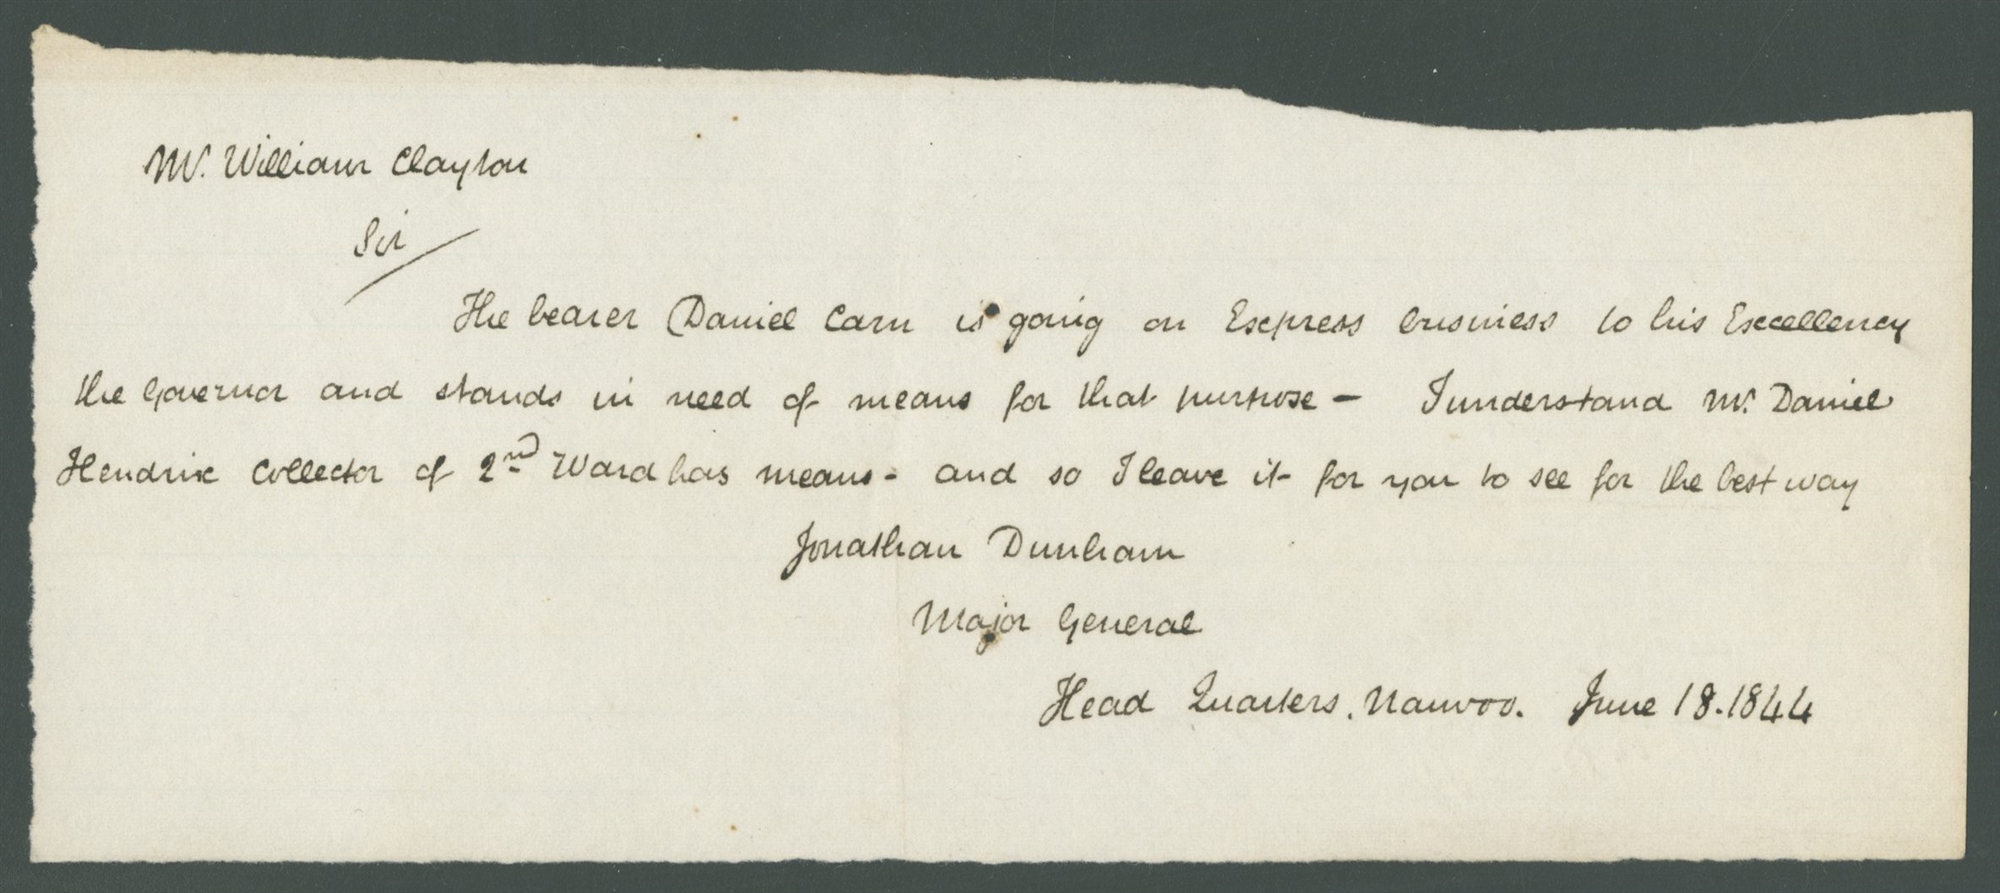 Mr. William Clayton
Sir
The bearer Daniel Carn is going on Express business to his Excellency
the Governor and stands in need of means for that purpose – I understand Mr. Daniel
Hendrix Collector of 2nd Ward has means - and so I leave it for you to see for the best way
Jonathan Dunham
Major General
Head Quarters. Nauvoo. June 18. 1844